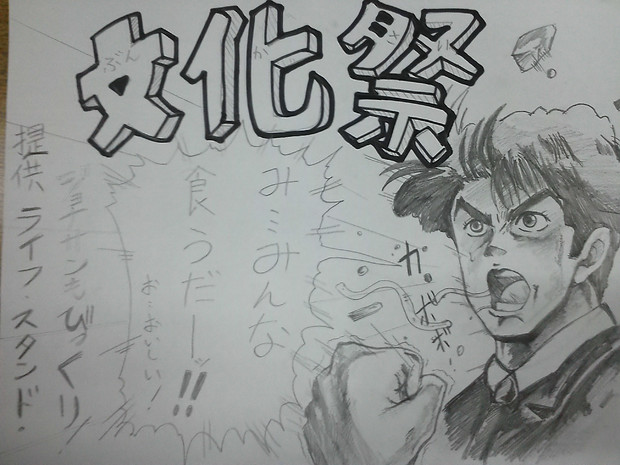 文化祭
ぶんか
ガ
ボボボ
もも
みミみんな
食うだーッ!!
お…おいしい!
もびっくり!
提供、ライフ・スタンド・